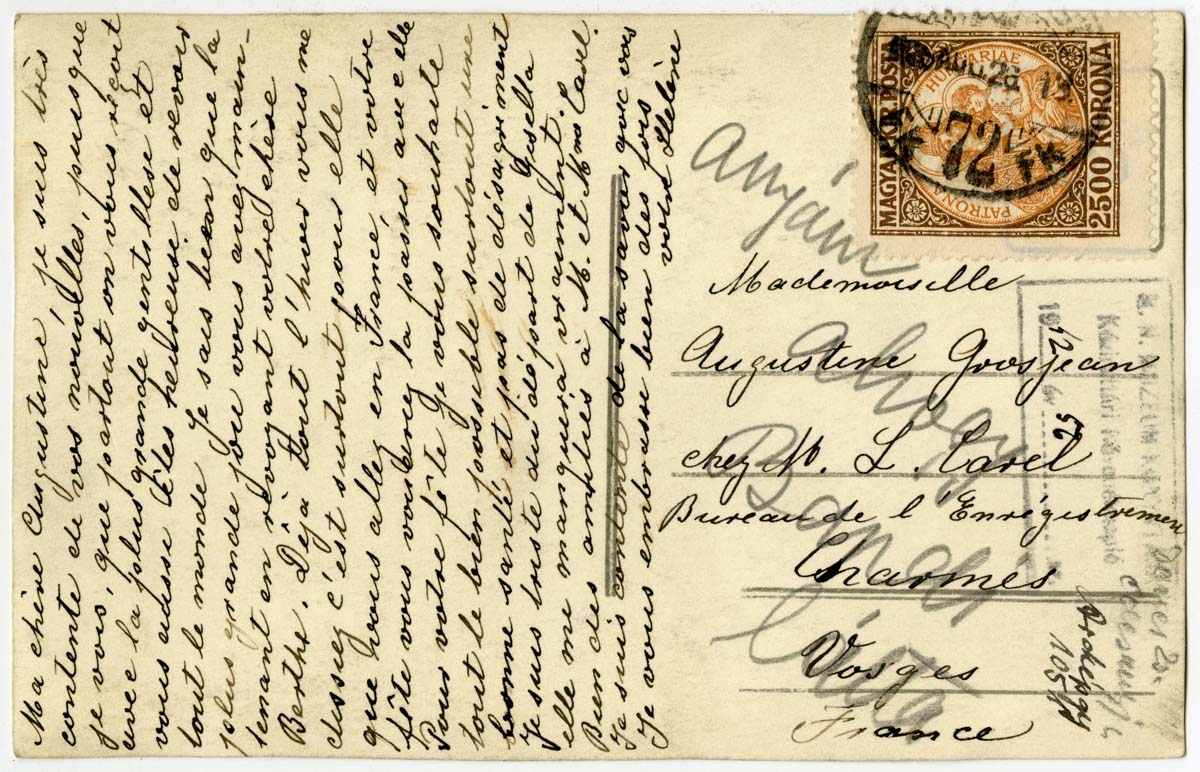 Ma chère Augustine je suis très
contente de vos nouvelles, puisque
je vois, que partout on vous reçoit
avec la plus grande gentillesse et
vous aussi êtes heureuse de revoir
tout le monde. Je sais bien que la
plus grande joie vous avez main-
tenant en révoyant votre chère
Berthe. Déjà tout l'hiver vous me
dissiez c'est surtout pour elle
que vous allez en France, et votre
fête vous voudriez la passer avec elle
Pour votre fête je vous souhaite
tout le bien possible surtout une
bonne santé, et pas de désagrément
Je suis triste du départ de Gisella
elle me manquera vraiment.
Bien des amitiés à M. et Mme Carel.
Je suis contente de la savoir avec vous
Je vous embrasse bien des fois
votre Hélène
MAGYAR KIR. POSTA
2500 KORONA
PATRONA HUNGARIAE
AUG. 28
72
Mademoiselle
Augustine Grosjean
chez M. L. Carel
Bureau de l'Enrégistrement
Charmes
Vosges
France
anyám
ahogy
105